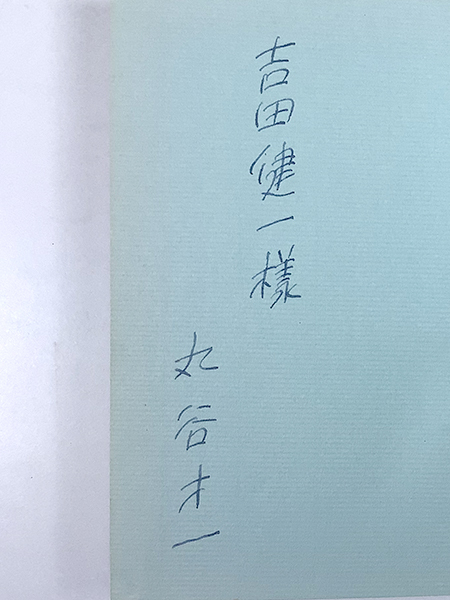 吉田健一様
丸谷才一